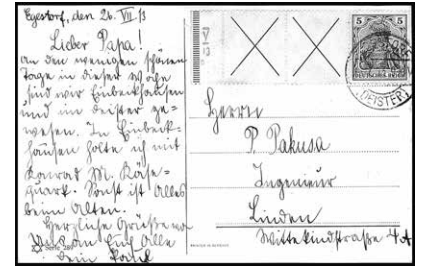 Egestorf, den 26. VII. 13
Lieber Papa!
An den wenigen schönen
Tage in dieser Woche
sind wir Einbeckhausen
und im Deister ge-
wesen. In Einbeck-
hausen holte ich mit
Konrad M. Käse-
quark. Sonst ist Alles
beim Alten.
Herzliche Grüße
an Euch Alle
Dein
Serie 269
5
5
DEUTSCHES REICH
(DEISTER)
Herrn
P. Pakusa
Ingenieur
Linden
Wittekindstraße